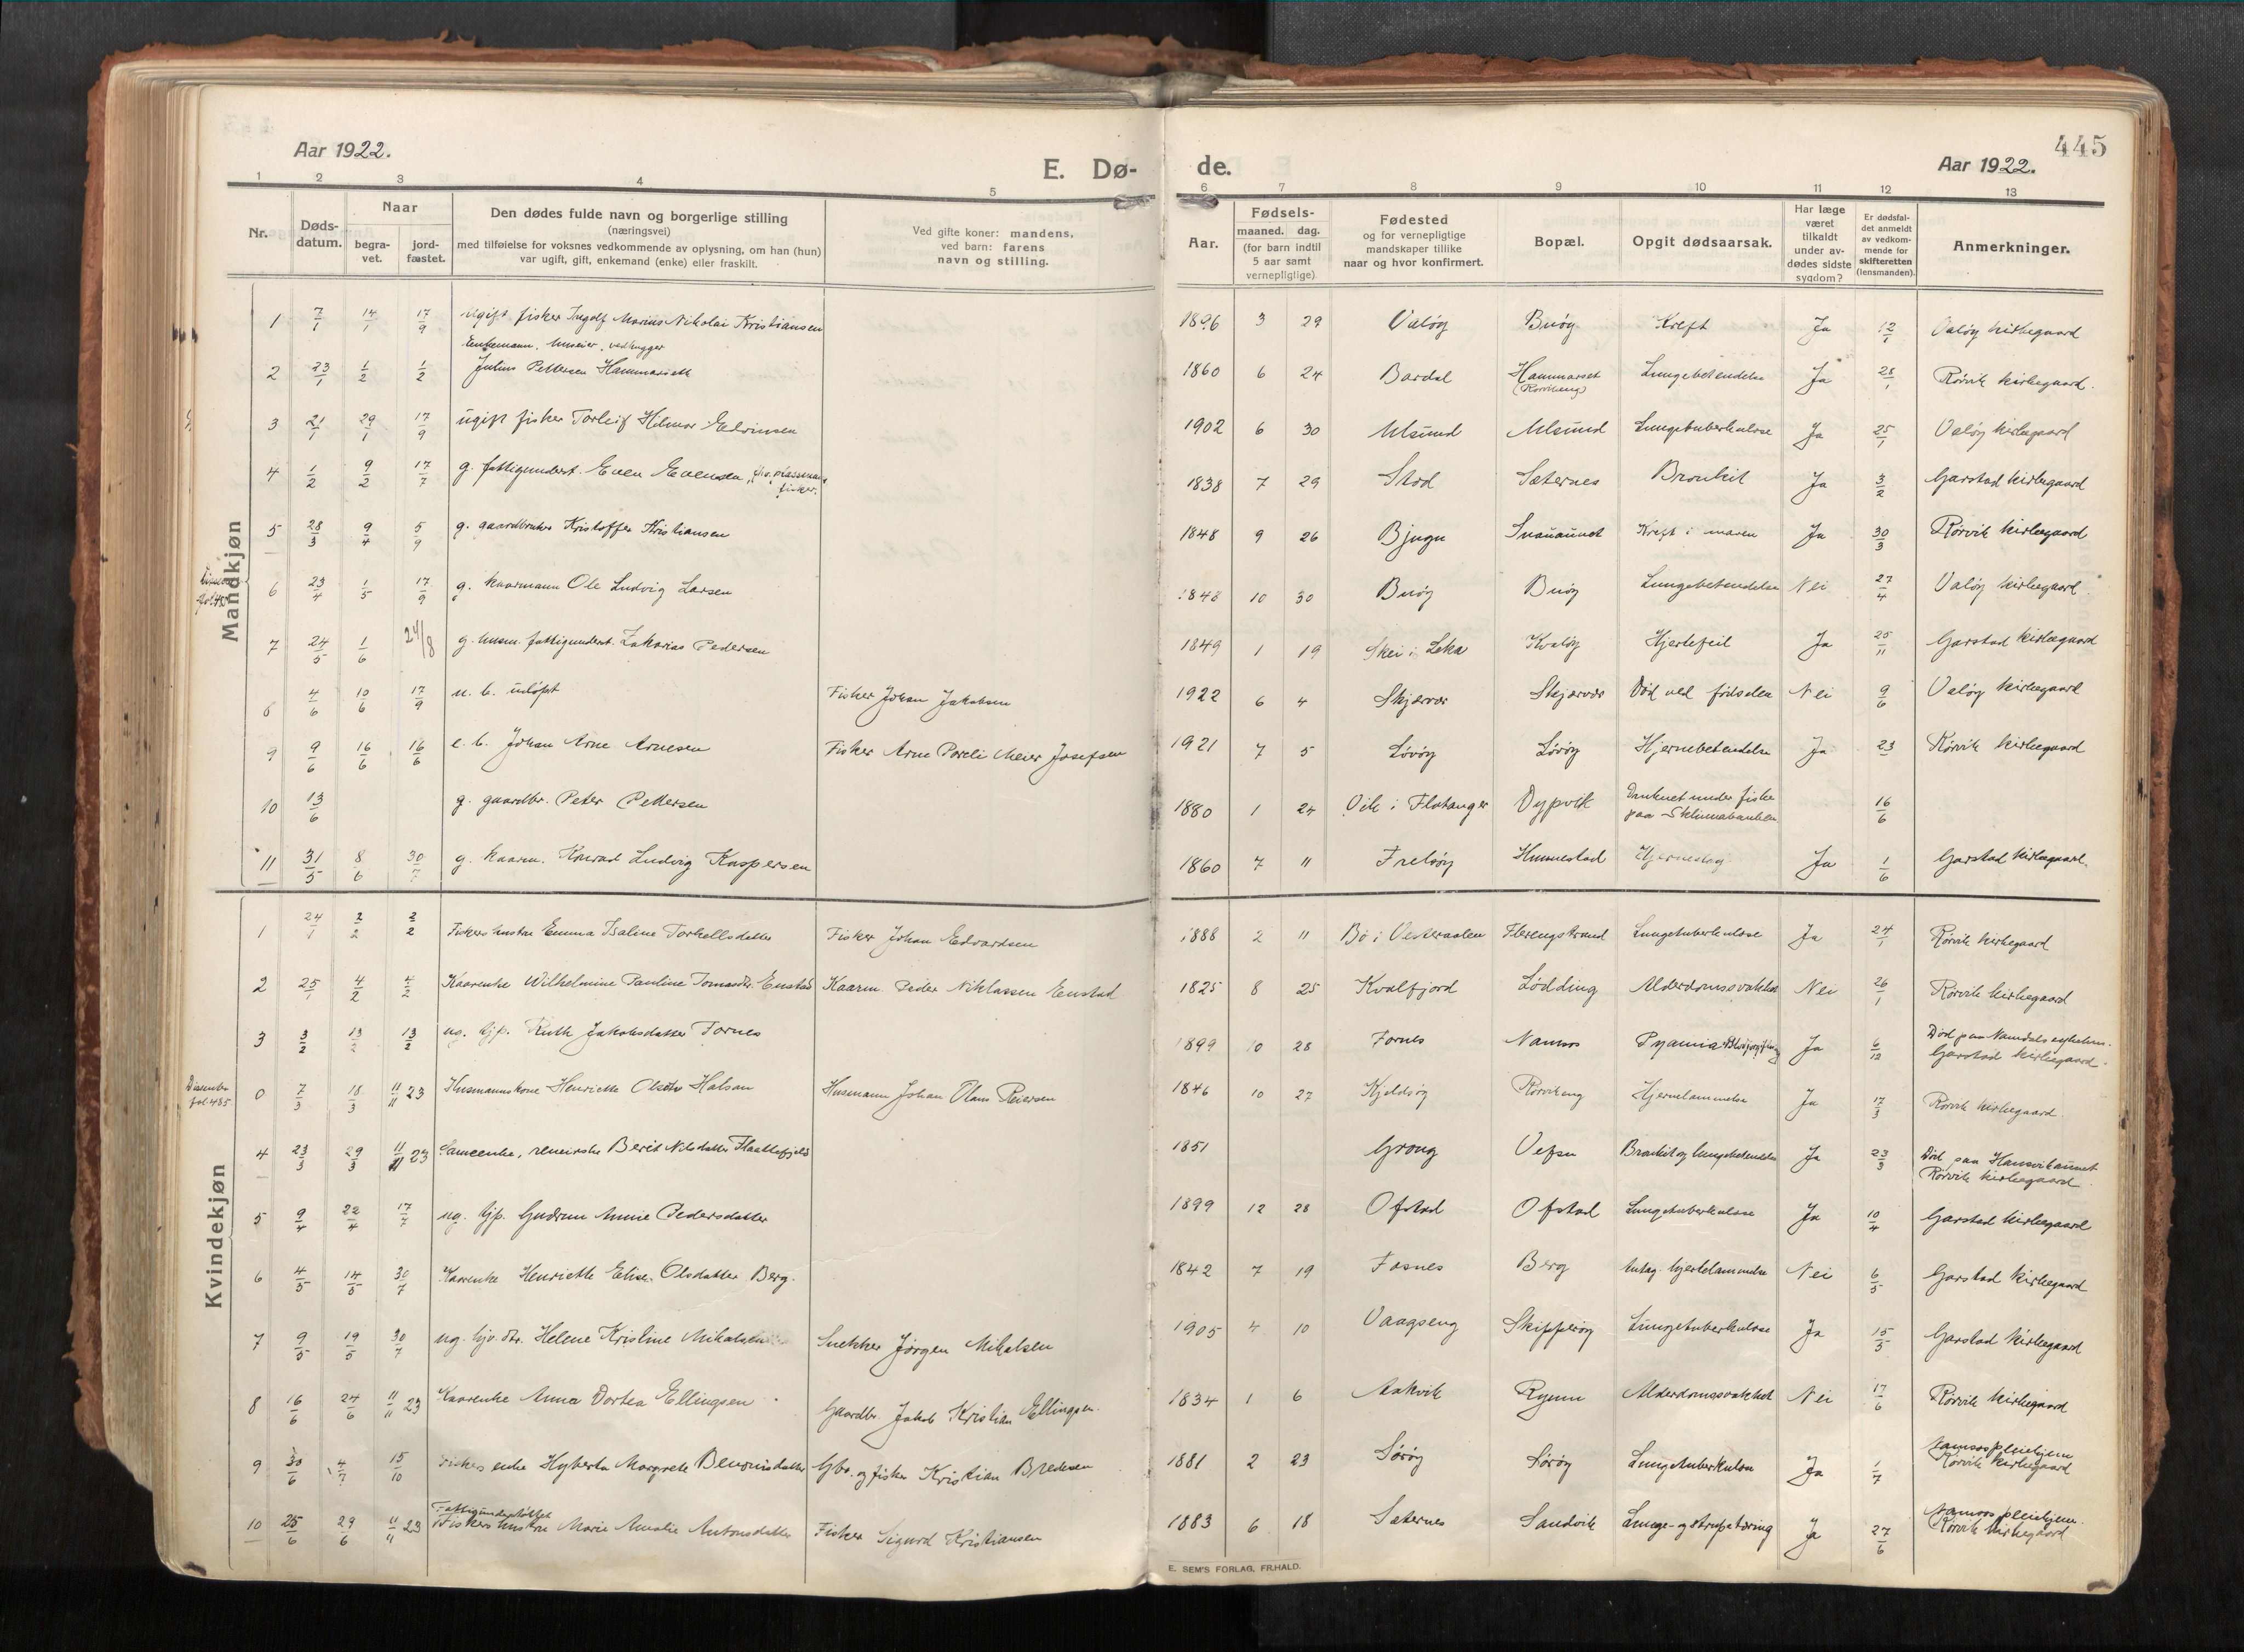 445
Aar 1922.
E. Dø-
de.
Aar 1922.
1 2 3 4 5 6 7 8 9 10 11 12 13
Nr.
Døds-
datum.
Naar
begra-
vet.
jord-
fæstet.
Den dødes fulde navn og borgerlige stilling
(næringsvei)
med tilføielse for voksnes vedkommende av oplysning, om han (hun)
var ugift, gift, enkemand (enke) eller fraskilt.
Ved gifte koner: mandens,
ved barn: farens
navn og stilling.
Aar.
Fødsels-
maaned. dag.
(for barn indtil
5 aar samt
vernepligtige)
Fødested
og for vernepligtige
mandskaper tillike
naar og hvor konfirmert.
Bopæl.
Opgit dødsaarsak.
Har læge
været
tilkaldt
under av-
dødes sidste
sygdom?
Er dødsfal-
det anmeldt
av vedkom-
mende for
skifteretten
(lensmanden).
Anmerkninger.
Mandkjøn
1 7/1 14/1 17/9 ugift fisker Ingolf Marius Nikolai Kristiansen 1896 3 29 Valøy Buøy Kreft Ja 12/1 Valøy kirkegaard
Enkemann, huseier, vedhugger
2 23/1 1/2 1/2 Julius Pettersen Hammarsett 1860 6 24 Bardal Hammarset Lungebetendelse Ja 28/1 Rørvik kirkegaard.
(Rørvikeng)
3 21/1 29/1 17/9 ugift fisker Torleif Hilmar Edvinsen 1902 6 30 Ulsund Ulsund Lungetuberkulose Ja 25/1 Valøy kirkegaard
4 1/2 9/2 17/7 g. fattigunderst. Even Evensen, fhv. plassmann, 1838 7 29 Stod Sæternes Bronkit Ja 3/2 Garstad kirkegaard
fisker.
5 28/3 9/4 5/9 g. gaardbruker Kristoffer Kristiansen 1848 9 26 Bjugn Kreft i maven Ja 30/3 Rørvik kirkegaard
6 23/4 1/5 17/9 g. kaarmann Ole Ludvig Larsen 1848 10 30 Buøy Buøy Lungebetendelse Nei 27/4 Valøy kirkegaard.
fol. 485
7 24/5 1/6 24/8 g. husm. fattigunderst. Zakarias Pedersen 1849 1 19 Skei i Leka Kvaløy Hjertefeil Ja 25/11 Garstad kirkegaard
8 4/6 10/6 17/9 u. b. udøpt Fisker Johan Jakobsen 1922 6 4 Skjærvær Skjærvær Død ved fødselen Nei 9/6 Valøy kirkegaard
9 9/6 16/6 16/6 e. b. Johan Arne Arnesen Fisker Arne Pareli Meier Josefsen 1921 7 5 Løvøy Løvøy Hjernebetendelse Ja 23 Rørvik kirkegaard
10 13/6 g. gaardbr. Peter Pettersen 1880 1 24 Vik i Flatanger Dypvik Druknet under fiske 16/6
paa Sklinnabanken
11 31/5 8/6 30/7 g. kaarm. Konrad Ludvig Kaspersen 1860 7 11 Frelsøy Hunnestad Hjerneslag Ja 1/6 Garstad kirkegaard.
Kvindekjøn
1 24/1 2/2 2/2 Fiskers hustru Emma Isaline Torkellsdatter Fisker Johan Edvardsen 1888 2 11 Bø i Vesteraalen Flerengstrand Lungetuberkulose Ja 24/1 Rørvik kirkegaard
2 25/1 4/2 4/2 Kaarenke Wilhelmine Pauline Tomasdtr. Enstad Kaarm. Peder Niklassen Enstad 1825 8 25 Kvalfjord Lødding Alderdomssvakhet Nei 26/1 Rørvik kirkegaard
3 3/2 13/2 13/2 ug. tjp. Ruth Jakobsdatter Fornes 1899 10 28 Fornes Namsos Pyæmia Blodforgiftning Ja 6/12 Død paa Namdals sykehus.
Garstad kirkegaard.
fol. 485
0 7/3 18/3 11/11 23 Husmannskone Henriette Olsdtr Halsan Husmann Johan Olaus Reiersen 1846 10 27 Kjeldsøy Rørvikeng Hjernelammelse Ja 17/3 Rørvik kirkegaard.
4 23/3 29/3 11/11 23 Sameenke, reneierske Berit Nilsdatter Flaattefjeld 1851 Grong Vefsn Bronkit og lungebetendelse Ja 23/3 Død paa Hansvikaunet
Rørvik kirkegaard.
5 9/4 22/4 17/7 ug. tjp. Gudrun Annie Pedersdatter 1899 12 28 Ofstad Ofstad Lungetuberkulose Ja 10/4 Garstad kirkegaard
6 4/5 14/5 30/7 Kaarenke Henriette Elise Olsdatter Berg. 1842 7 19 Fosnes Berg Antag. hjertelammelse Nei 6/5 Garstad kirkegaard
7 9/5 19/5 30/7 ug. hjv. dtr. Helene Kristine Mikalsen Snekker Jørgen Mikalsen 1905 4 10 Vaagseng Skipperøy Lungetuberkulose Ja 15/5 Garstad kirkegaard
8 16/6 24/6 11/11 23 Kaarenke Anna Dortea Ellingsen Gaardbr. Jakob Kristian Ellingsen. 1834 1 6 Aakvik Ryum Alderdomssvakhet Nei 17/6 Rørvik kirkegaard
9 30/6 4/7 15/10 Fiskers enke Hyberta Margrete Benonisdatter Gbr. og fisker Kristian Bredesen 1881 2 23 Sørøy Sørøy Lungetuberkulose Ja 1/7 Namsos pleiehjem
Rørvik kirkegaard
Fattigunderstøttet
10 25/6 29/6 11/11 23 Fiskers hustru Marie Amalie Antonsdatter Fisker Sigurd Kristiansen 1883 6 18 Sæternes Sandvik Lunge- og strupetæring Ja 27/6 Namsos pleiehjem.
Rørvik kirkegaard
E. SEM'S FORLAG, FR.HALD.